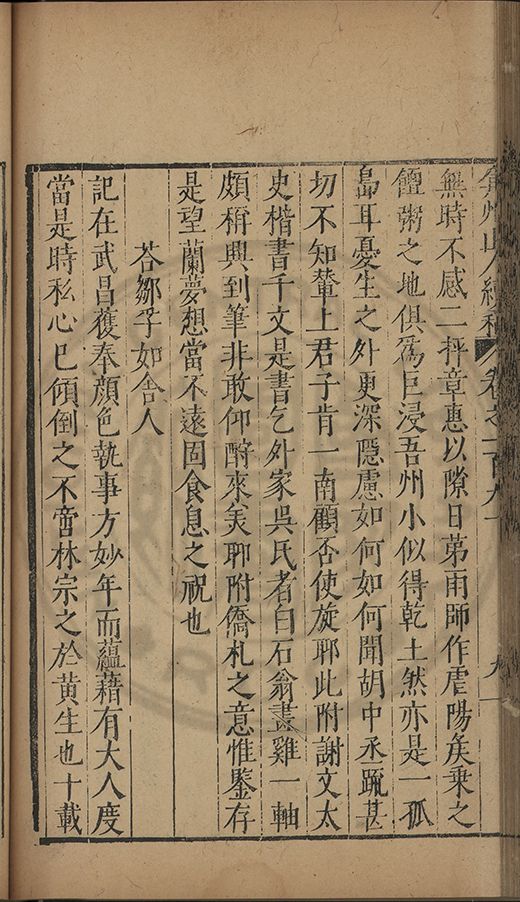 弇州山人續稿　卷之一百九十　九
無時不感二抨章惠以隙日第雨師作虐陽矦乗之
饘粥之地俱爲巨浸吾州小似得乾土然亦是一孤
島耳憂生之外更深隱慮如何如何聞胡中丞䟽甚
切不知輦上君子肯一南顧否使旋聊此附謝文太
史楷書千文是書乞外家吳氏者白石翁畫雞一軸
頗稱興到筆非敢仰酧來美聊附僑札之意惟鑒存
是望蘭夢想當不遠固食息之祝也
荅鄒孚如舍人
記在武昌獲奉顔色執事方妙年而蘊藉有大人度
當是時私心已傾倒之不啻林宗之於黄生也十載